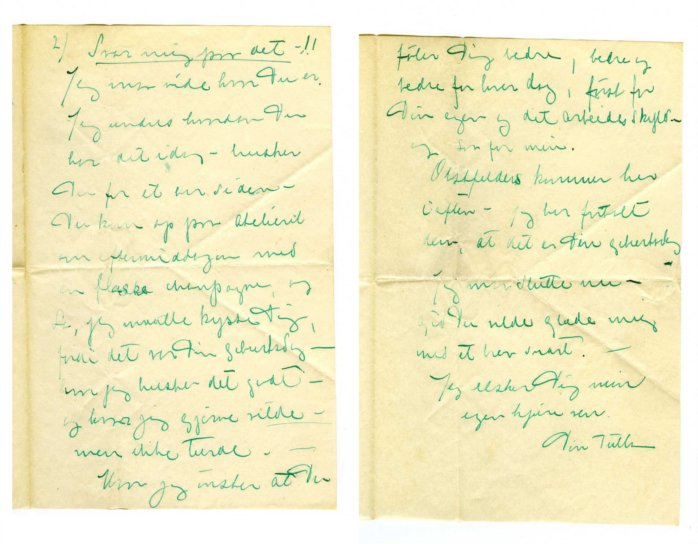 2/ Svar mig paa det -!!
Jeg maa vide hvor Du er.
Jeg undres hvordan Du
har det idag - husker
Du for et aar siden -
Du kom op paa atelieret
om eftermiddagen med
en flaske champagne, og
sa, jeg maatte kysse Dig,
fordi det var Din geburtsdag -
aa jeg husker det godt -
og hvor jeg gjerne vilde -
men ikke turde. -
Hvor jeg ønsker at Du
føler Dig bedre, bedre og
bedre for hver dag, først for
Din egen og det arbeides skyld -
og saa for min.
Obstfelders kommer her
iaften - jeg har fortalt
dem, at det er Din geburtsdag
Jeg maa slutte nu -
gid Du vilde glæde mig
med et brev snart. -
Jeg elsker Dig min
egen kjære ven.
Din Tulla